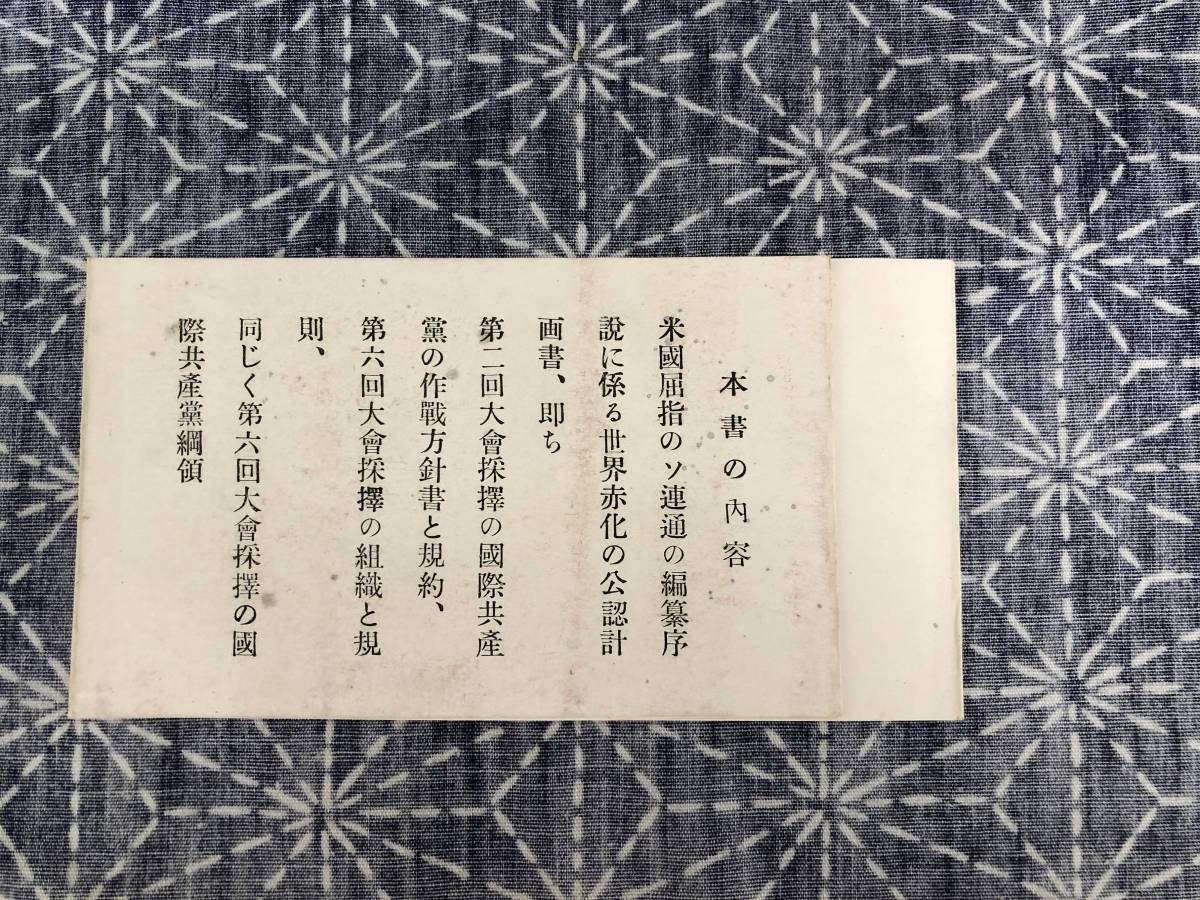 本書の內容
米國屈指のソ連通の編纂序
說に係る世界赤化の公認計
画書、即ち
第二回大會採擇の國際共產
黨の作戰方針書と規約、
第六回大會採擇の組織と規
則、
同じく第六回大會採擇の國
際共產黨綱領